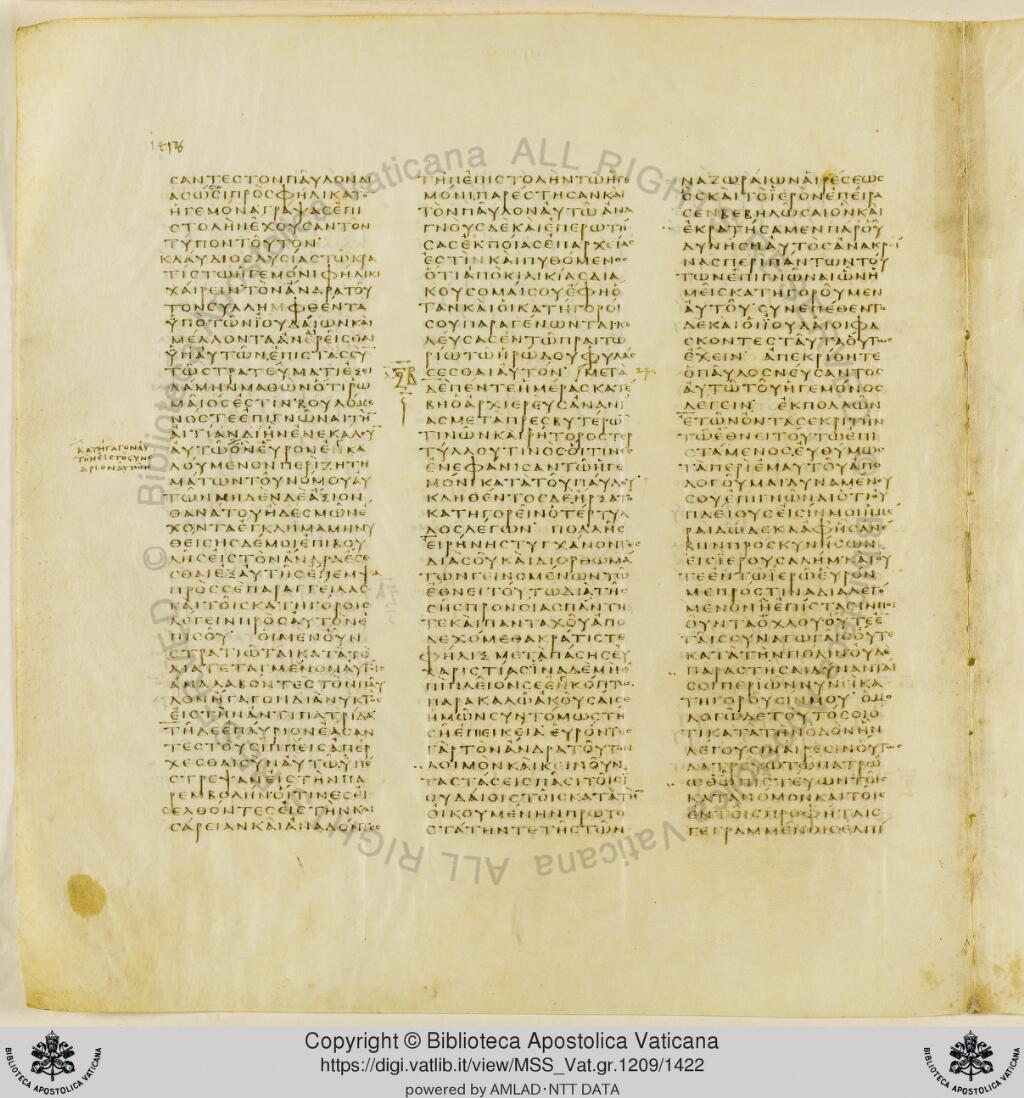 ϹΑΝΤΕϹΤΟΝΠΑΥΛΟΝΔΙ
ΑϹΩϹΩϹΙΠΡΟϹΦΗΛΙΚΑΤΟ
ΗΓΕΜΟΝΑΓΡΑΨΑϹΕΠΙ
ϹΤΟΛΗΝΕΧΟΥϹΑΝΤΟΝ
ΤΥΠΟΝΤΟΥΤΟΝ
ΚΛΑΥΔΙΟϹΛΥϹΙΑϹΤΩΚΡΑ
ΤΙϹΤΩΗΓΕΜΟΝΙΦΗΛΙΚΙ
ΧΑΙΡΕΙΝΤΟΝΑΝΔΡΑΤΟΥ
ΤΟΝϹΥΛΛΗΜΦΘΕΝΤΑ
ΥΠΟΤΩΝΙΟΥΔΑΙΩΝΚΑΙ
ΜΕΛΛΟΝΤΑΑΝΕΡΕΙϹΘΑΙ
ΥΠΑΥΤΩΝΕΠΙϹΤΑϹϹΥ
ΤΩϹΤΡΑΤΕΥΜΑΤΙΕΞΕΙ
ΛΑΜΗΝΜΑΘΩΝΟΤΙΡΩ
ΜΑΙΟϹΕϹΤΙΝΒΟΥΛΟΜΕ
ΝΟϹΤΕΕΠΙΓΝΩΝΑΙΤΗ
ΑΙΤΙΑΝΔΙΗΝΕΝΕΚΑΛΟΥ
ΑΥΤΩΟΝΕΥΡΟΝΕΓΚΑ
ΛΟΥΜΕΝΟΝΠΕΡΙΖΗΤΗ
ΜΑΤΩΝΤΟΥΝΟΜΟΥΑΥ
ΤΩΝΜΗΔΕΝΔΕΑΞΙΟΝ
ΘΑΝΑΤΟΥΗΔΕϹΜΩΝΕ
ΧΟΝΤΑΕΓΚΛΗΜΑΜΗΝΥ
ΘΕΙϹΗϹΔΕΜΟΙΕΠΙΒΟΥ
ΛΗϹΕΙϹΤΟΝΑΝΔΡΑΕϹΕ
ϹΘΑΙΕΞΑΥΤΗϹΕΠΕΜΨΑ
ΠΡΟϹϹΕΠΑΡΑΓΓΕΙΛΑϹ
ΚΑΙΤΟΙϹΚΑΤΗΓΟΡΟΙϹ
ΛΕΓΕΙΝΠΡΟϹΑΥΤΟΝΕ
ΠΙϹΟΥ ΟΙΜΕΝΟΥΝ
ϹΤΡΑΤΙΩΤΑΙΚΑΤΑΤΟ
ΔΙΑΤΕΤΑΓΜΕΝΟΝΑΥΤΟΙϹ
ΑΝΑΛΑΒΟΝΤΕϹΤΟΝΠΑΥ
ΛΟΝΗΓΑΓΟΝΔΙΑΝΥΚΤΟϹ
ΕΙϹΤΗΝΑΝΤΙΠΑΤΡΙΔΑ
ΤΗΔΕΕΠΑΥΡΙΟΝΕΑϹΑΝ
ΤΕϹΤΟΥϹΙΠΠΕΙϹΑΠΕΡ
ΧΕϹΘΑΙϹΥΝΑΥΤΩΥΠΕ
ϹΤΡΕΨΑΝΕΙϹΤΗΝΠΑ
ΡΕΜΒΟΛΗΝΟΙΤΙΝΕϹΕΙϹ
ΕΛΘΟΝΤΕϹΕΙϹΤΗΝΚΑΙ
ϹΑΡΕΙΑΝΚΑΙΑΝΑΔΟΝΤΕϹ
ΚΑΤΗΓΑΓΟΝΑΥ
ΤΟΝΕΙϹΤΟϹΥΝΕ
ΔΡΙΟΝΑΥΤΩΝ
ΤΗΝΕΠΙϹΤΟΛΗΝΤΩΗΓΕ
ΜΟΝΙΠΑΡΕϹΤΗϹΑΝΚΑΙ
ΤΟΝΠΑΥΛΟΝΑΥΤΩΑΝΑ
ΓΝΟΥϹΔΕΚΑΙΕΠΕΡΩΤΗ
ϹΑϹΕΚΠΟΙΑϹΕΠΑΡΧΕΙΑϹ
ΕϹΤΙΝΚΑΙΠΥΘΟΜΕΝΟϹ
ΟΤΙΑΠΟΚΙΛΙΚΙΑϹΔΙΑ
ΚΟΥϹΟΜΑΙϹΟΥΕΦΗΟ
ΤΑΝΚΑΙΟΙΚΑΤΗΓΟΡΟΙ
ϹΟΥΠΑΡΑΓΕΝΩΝΤΑΙΚΕ
ΛΕΥϹΑϹΕΝΤΩΠΡΑΙΤΩ
ΡΙΩΤΩΗΡΩΔΟΥΦΥΛΑϹ
ϹΕϹΘΑΙΑΥΤΟΝ ΜΕΤΑ
ΔΕΠΕΝΤΕΗΜΕΡΑϹΚΑΤΕ
ΒΗΟΑΡΧΙΕΡΕΥϹΑΝΑΝΙ
ΑϹΜΕΤΑΠΡΕϹΒΥΤΕΡΩ
ΤΙΝΩΝΚΑΙΡΗΤΟΡΟϹΤΕΡ
ΤΥΛΛΟΥΤΙΝΟϹΟΙΤΙΝΕϹ
ΕΝΕΦΑΝΙϹΑΝΤΩΗΓΕ
ΜΟΝΙΚΑΤΑΤΟΥΠΑΥΛΟΥ
ΚΛΗΘΕΝΤΟϹΔΕΗΡΞΑΤΟ
ΚΑΤΗΓΟΡΕΙΝΟΤΕΡΤΥΛ
ΛΟϹΛΕΓΩΝ ΠΟΛΛΗϹ
ΕΙΡΗΝΗϹΤΥΓΧΑΝΟΝΤΕϹ
ΔΙΑϹΟΥΚΑΙΔΙΟΡΘΩΜΑ
ΤΩΝΓΕΙΝΟΜΕΝΩΝΤΩ
ΕΘΝΕΙΤΟΥΤΩΔΙΑΤΗϹ
ϹΗϹΠΡΟΝΟΙΑϹΠΑΝΤΗ
ΤΕΚΑΙΠΑΝΤΑΧΟΥΑΠΟ
ΔΕΧΟΜΕΘΑΚΡΑΤΙϹΤΕ
ΦΗΛΙΞΜΕΤΑΠΑϹΗϹΕΥ
ΧΑΡΙϹΤΙΑϹΙΝΑΔΕΜΗΕ
ΠΙΠΛΕΙΟΝϹΕΕΝΚΟΠΤΩ
ΠΑΡΑΚΑΛΩΑΚΟΥϹΑΙϹΕ
ΗΜΩΝϹΥΝΤΟΜΩϹΤΗ
ϹΗΕΠΙΕΙΚΕΙΑΕΥΡΟΝΤΕϹ
ΓΑΡΤΟΝΑΝΔΡΑΤΟΥΤΟΝ
ΛΟΙΜΟΝΚΑΙΚΕΙΝΟΥΝ
ΤΑϹΤΑϹΕΙϹΠΑϹΙΤΟΙϹΙ
ΟΥΔΑΙΟΙϹΤΟΙϹΚΑΤΑΤΗΝ
ΟΙΚΟΥΜΕΝΗΝΠΡΩΤΟ
ϹΤΑΤΗΝΤΕΤΗϹΤΩΝ
ΝΑΖΩΡΑΙΩΝΑΙΡΕϹΕΩϹ
ΟϹΚΑΙΤΟΙΕΡΟΝΕΠΕΙΡΑ
ϹΕΝΒΕΒΗΛΩϹΑΙΟΝΚΑΙ
ΕΚΡΑΤΗϹΑΜΕΝΠΑΡΟΥ
ΔΥΝΗϹΗΑΥΤΟϹΑΝΑΚΡΕΙ
ΝΑϹΠΕΡΙΠΑΝΤΩΝΤΟΥ
ΤΩΝΕΠΙΓΝΩΝΑΙΩΝΗ
ΜΕΙϹΚΑΤΗΓΟΡΟΥΜΕΝ
ΑΥΤΟΥ ϹΥΝΕΠΕΘΕΝΤΟ
ΔΕΚΑΙΟΙΙΟΥΔΑΙΟΙΦΑ
ϹΚΟΝΤΕϹΤΑΥΤΑΟΥΤΩϹ
ΕΧΕΙΝ ΑΠΕΚΡΙΘΗΤΕ
ΟΠΑΥΛΟϹΝΕΥϹΑΝΤΟϹ
ΑΥΤΩΤΟΥΗΓΕΜΟΝΟϹ
ΛΕΓΕΙΝ ΕΚΠΟΛΛΩΝ
ΕΤΩΝΟΝΤΑϹΕΚΡΙΤΗΝ
ΤΩΕΘΝΕΙΤΟΥΤΩΕΠΙ
ϹΤΑΜΕΝΟϹΕΥΘΥΜΩϹ
ΤΑΠΕΡΙΕΜΑΥΤΟΥΑΠΟ
ΛΟΓΟΥΜΑΙΔΥΝΑΜΕΝΟΥ
ϹΟΥΕΠΙΓΝΩΝΑΙΟΤΙΟΥ
ΠΛΕΙΟΥϹΕΙϹΙΝΜΟΙΗΜΕ
ΡΑΙΔΩΔΕΚΑΑΦΗϹΑΝΕ
ΒΗΝΠΡΟϹΚΥΝΗϹΩΝ
ΕΙϹΙΕΡΟΥϹΑΛΗΜΚΑΙΟΥ
ΤΕΕΝΤΩΙΕΡΩΕΥΡΟΝ
ΜΕΠΡΟϹΤΙΝΑΔΙΑΛΕΓΟ
ΜΕΝΟΝΗΕΠΙϹΤΑϹΙΝΠΟΙ
ΟΥΝΤΑΟΧΛΟΥΟΥΤΕΕ
ΤΑΙϹϹΥΝΑΓΩΓΑΙϹΟΥΤΕ
ΚΑΤΑΤΗΝΠΟΛΙΝΟΥΔΕ
ΠΑΡΑϹΤΗϹΑΙΔΥΝΑΝΤΑΙ
ϹΟΙΠΕΡΙΩΝΝΥΝΕΙΚΑ
ΤΗΓΟΡΟΥϹΙΝΜΟΥ ΟΜΟ
ΛΟΓΩΔΕΤΟΥΤΟϹΟΙΟ
ΤΙΚΑΤΑΤΗΝΟΔΟΝΗΝ
ΛΕΓΟΥϹΙΝΑΙΡΕϹΙΝΟΥΤΩϹ
ΛΑΤΡΕΥΩΤΩΠΑΤΡΩ
ΩΘΩΠΙϹΤΕΥΩΝΤΟΙϹ
ΚΑΤΑΝΟΜΟΝΚΑΙΤΟΙϹ
ΕΝΤΟΙϹΠΡΟΦΗΤΑΙϹ
ΓΕΓΡΑΜΜΕΝΟΙϹΕΛΠΙ
Copyright © Biblioteca Apostolica Vaticana
https://digi.vatlib.it/view/MSS_Vat.gr.1209/1422
powered by AMLAD·NTT DATA